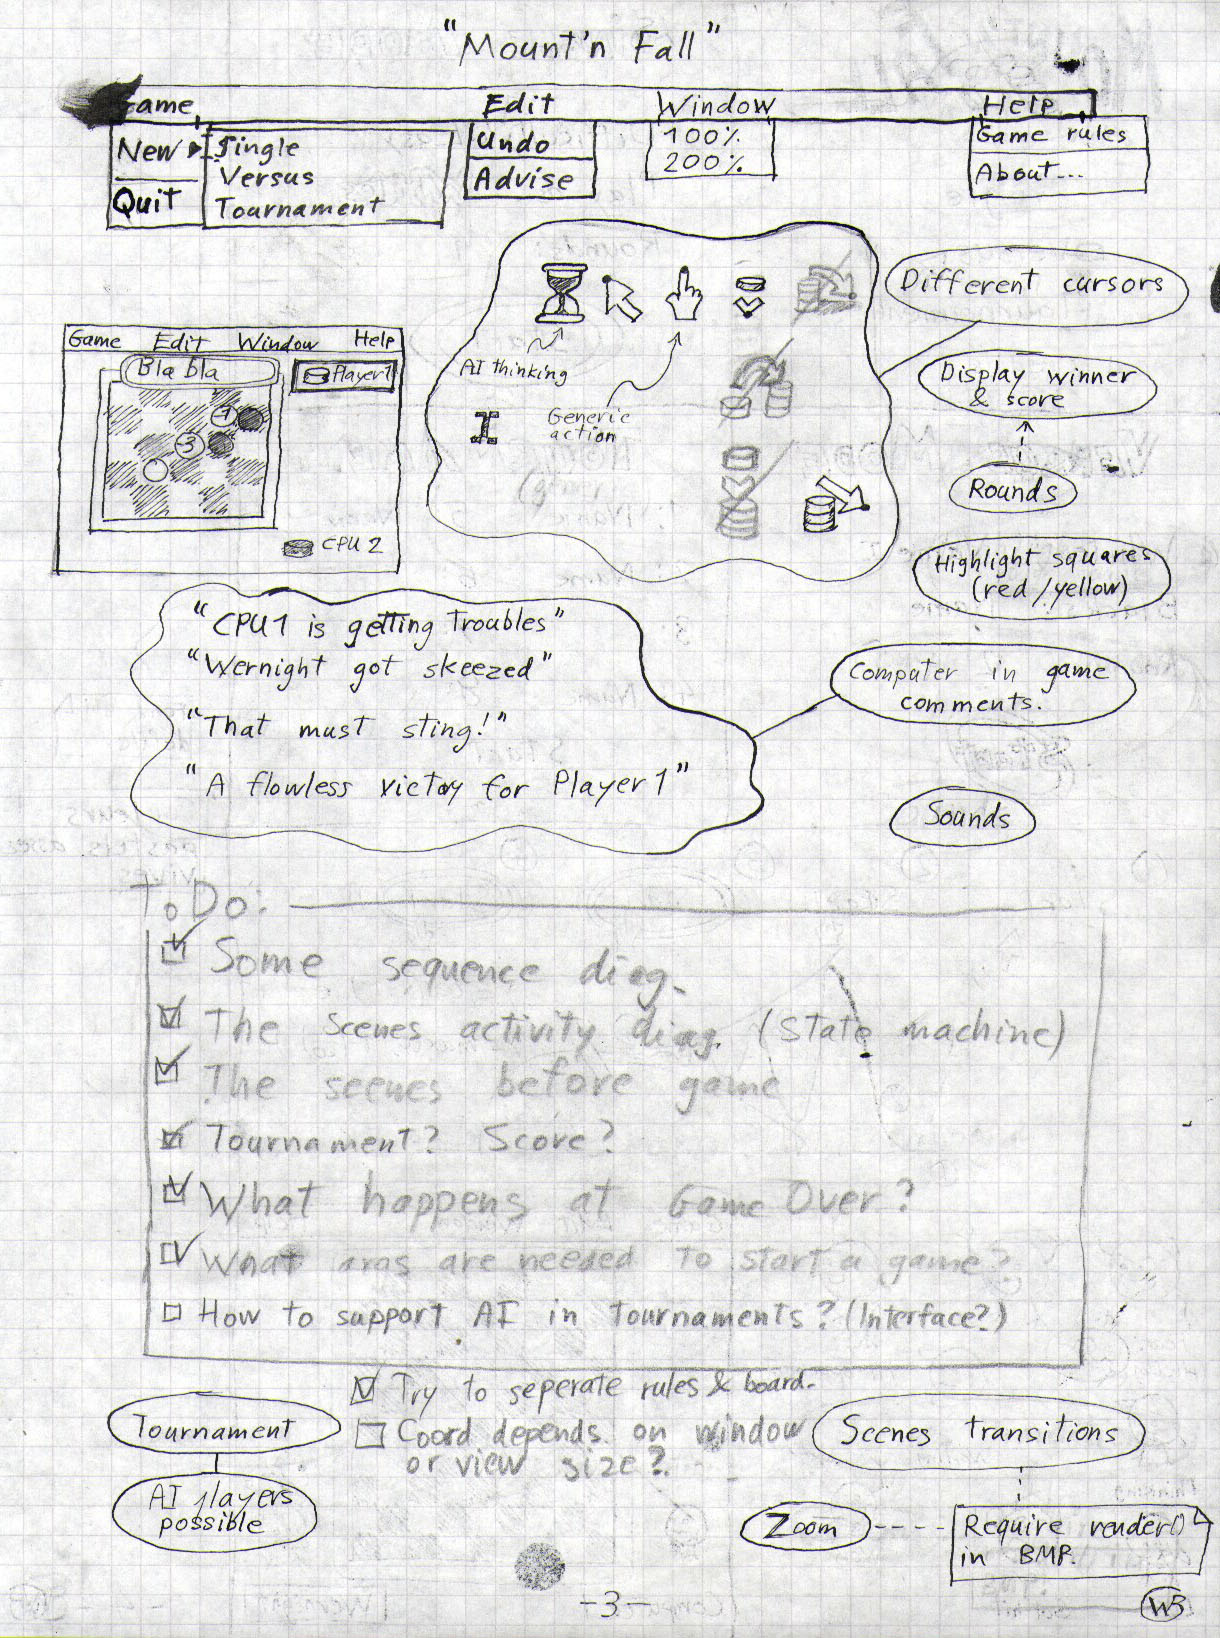 "Mount'n Fall"
Game Edit Window Help
New Single Undo 100% Game rules
Versus 200%
Quit Tournament Advise About...
Different cursors
AI thinking
Generic
action
Game Edit Window Help
Bla bla Player1
-1
-3
CPU 2
Display winner
& score
Rounds
Highlight squares
(red/yellow)
"CPU1 is getting troubles"
"Wernight got skeezed"
"That must sting!"
"A flowless victoy for Player1"
Computer in game
comments.
Sounds
ToDo:
Some sequence diag.
The scenes activity diag. (State machine)
The scenes before game
Tournament? Score?
What happens at Game Over?
What args are needed to start a game?
How to support AI in tournaments? (Interface?)
Try to seperate rules & board.
Coord depends on window
or view size?
Tournament
AI players
possible
Scenes transitions
Zoom
Require render()
in BMP.
-3-
WB